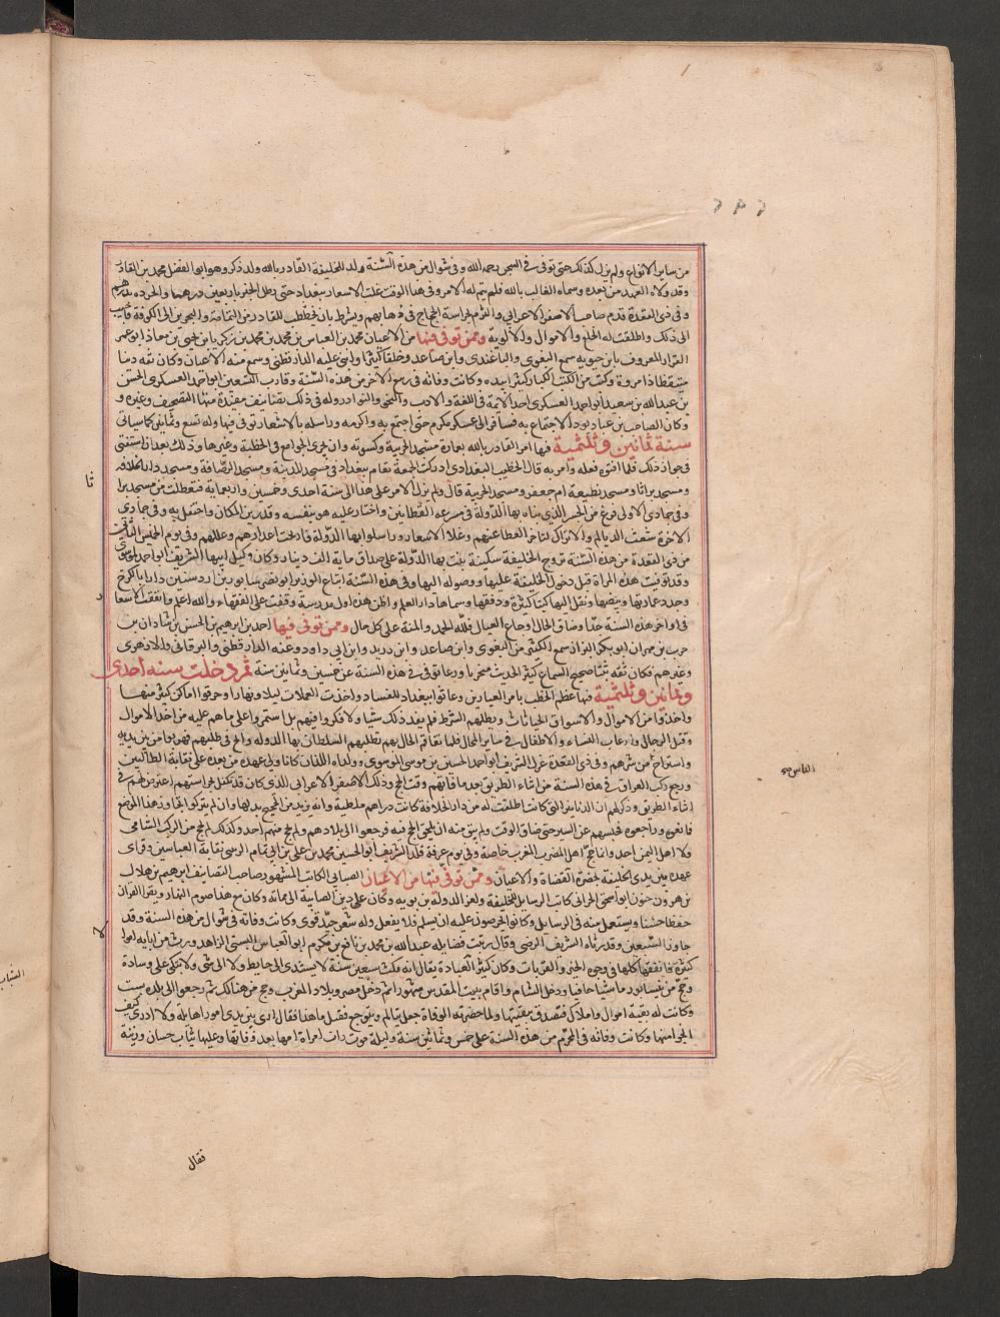 من ساير الانواع ولم يزل كذلك حتى توفى في السجن رحمه الله وفى شوال من هذه السنة ولد للخليفة القادر بالله ولد ذكر وهو ابو الفضل محمد بن القادر
وقد ولاه العهد من بعده وسماه الغالب بالله فلم يتم له الامر وفى هذا الوقت غلت الاسعار ببغداد حتى رطل الخبز باربعين درهما والجزره بدرهم
وفى ذى القعدة قدم صاحب الاصفر الاعرابى والتزم بحراسة الحجاج فى ذهابهم ويشرط بان يخطب للقادر من اليمامة والبحرين الى الكوفة فاجيب
الى ذلك واطلقت له الخلع والاموال والالوية وممن توفى فيها من الاعيان محمد بن العباس بن محمد بن محمد بن زكريا بن يحيى بن معاذ ابو عمر
القزاز المعروف بابن حيويه سمع البغوى والباغندى وابن صاعد وخلقا كثيرا وانتقى عليه الدارقطنى وسمع منه الاعيان وكان ثقه دينا
متيقظا ذا مروة وكتب من الكتب الكبار كثيرا بيده وكانت وفاته فى ربيع الاخر من هذه السنة وقارب التسعين ابو احمد العسكرى الحسن
بن عبدالله بن سعيد ابو احمد العسكرى احد الائمة فى اللغة والادب والنحو والنوادر وله فى ذلك تصانيف مفيدة منها التصحيف وغيره و
وكان الصاحب بن عباد يود الاجتماع به فسافر الى عسكر مكرم حتى اجتمع به واكرمه وراسله بالاشعار توفى فيها وله تسع وثمانين كما سياتى
سنة ثمانين وثلثمية فيها امر القادر بالله بعمارة مسجد الحربية وكسوته وان يجرى الجوامع فى الخطبة وغيرها وذلك بعد ان استفتى
فى جواز ذلك فلما افتوه فعله وامر به قال الخطيب البغدادى ادركت الجمعة تقام ببغداد فى مسجد المدينة ومسجد الرصافة ومسجد دار الخلافة
ومسجد براثا ومسجد قطيعة ام جعفر ومسجد الحربية قال ولم يزل الامر على هذا الى سنة احدى وخمسين واربعماية فتعطلت من مسجد براثا
وفى جمادى الاولى فرغ من الجسر الذى بناه بها الدولة فى مشرعه القطانين واختار عليه هو بنفسه وقد زين المكان واحتفل به وفى جمادى
الاخرة شغب الديالم والاتراك لتاخر العطا عنهم وغلا الاسعار وراسلوا بها الدولة فازيحت اعذارهم وعللهم وفى يوم الخميس الثانى
من ذى القعدة من هذه السنة تزوج الخليفة سكينة بنت بها الدولة على صداق ماية الف دينار وكان وكيل ابيها الشريف ابو احمد الموسوى
وقد توفيت هذه المراة قبل دخول الخليفة عليها ووصوله اليها وفى هذه السنة ابتاع الوزير ابو نصر سابور بن اردشير دارا بالكرخ
وجدد عمارتها وبيضها ونقل اليها كتبا كثيرة ووقفها وسماها دار العلم واظن هذه اول مدرسة وقفت على الفقهاء والله اعلم وارتفعت الاسعار
فى اواخر هذه السنة جدا وضاق الحال وجاع العيال فلله الحمد والمنة على كل حال وممن توفى فيها احمد بن ابراهيم بن الحسن بن شاذان بن
حرب بن مهران ابو بكر البزاز سمع الكثير من البغوى وابن صاعد وابن دريد وابن ابى داود وعنه الدارقطنى والبرقانى والازهرى
وغيرهم فكان ثقة ثبتا صحيح السماع كثير الحديث متحريا ورعا توفى فى هذه السنة عن خمسين وثمانين سنة ثم دخلت سنه احدى
وثمانين وثلثمية فيها عظم الخطب بامر العيارين وعاثوا ببغداد للفساد واخذت العملات ليلا ونهارا وحرقوا اماكن كثيرة منها
واخذوا من الاموال والاسواق الجبايات وتطلبهم الشرط فلم يفد ذلك شيا ولا فكروا فيهم بل استمروا على ما هم عليه من اخذ الاموال
وقتل الرجال وارعاب النساء والاطفال فى ساير المحال فلما تفاقم الحال بهم تطلبهم السلطان بها الدوله والح فى طلبهم فهربوا من بين يديه
واستراح من شرهم وفى ذى القعدة عزل الشريف ابو احمد الحسين بن موسى الموسوى وولداه اللذان كانا وليى عهده من بعده على نقابة الطالبين
ورجع ركب العراق فى هذه السنة من اثناء الطريق بعد ما فاتهم وقت الحج وذلك الاصفر الاعرابى الذى كان قد تكفل بحراستهم اعترض لهم فى
اثناء الطريق وذكر لهم ان الدنانير التى كانت اطلقت له من دار الخلافة كانت دراهم مطلية وانه يريد من الحجيج بدلها وان لم يتركوا يتجاوزهذا الموضع
فمانعوه وراجعوه فحبسهم عن السير حتى ضاق الوقت ولم يبق منه ان يلحق الحج فيه فرجعوا الى بلادهم ولم يحج منهم احد وكذلك لم يحج من الركب الشامى
ولا اهل اليمن احد وانما حج اهل المصرب المغرب خاصة وفى يوم عرفة قلد الشريف ابو الحسين محمد بن على بن ابى تمام الزينبى نقابة العباسين وقراى
عهده بين يدى الخليفة بحضرة القضاة والاعيان وممن توفى فيها من الاعيان الصابى الكاتب المشهور صاحب التصانيف ابرهيم بن هلال
بن هرون ابو اسحق الحرانى كاتب الرسايل للخليفة ولمعز الدولة بن بويه وكان على دين الصابية الى مماته وكان مع هذا صوم النهار ويقرا القران
حفظا حسنا ويستعمل منه فى الرسايل وكانوا يحرصون عليه ان يسلم فلا يفعل وله شعر جيد قوى وكانت وفاته فى شوال من هذه السنة وقد
جاوز السبعين وقد رثاه الشريف الرضى وقال رثيت فضايله عبدالله بن محمد بن نافع بن مكرم ابو العباس البستى الزاهد ورث من ابايه اموالا
كثيرة فانفقها كلها فى وجوه الخير والقربات وكان كثير العبادة يقال انه مكث سبعين سنة لا يستند الى حايط ولا الى شى ولا يتكى على وسادة
وحج من نيسابور ماشيا حافيا ودخل الشام واقام ببيت المقدس شهورا ثم دخل مصر وبلاد المغرب وحج من هنالك ثم رجع الى بلده بست
وكانت له بقية اموال واملاك فتصدق ببقيتها ولما حضرته الوفاة جعل يتالم ويتوجع فقيل ما هذا فقال ارى بين يدى امورا هايلة ولا ادرى كيف
الجوا منها وكانت وفاته فى المحرم من هذه السنة على خمس وثمانين سنة وليلة موته رات امراة امها بعد وفاتها وعليها ثياب حسان وزينة
فقال